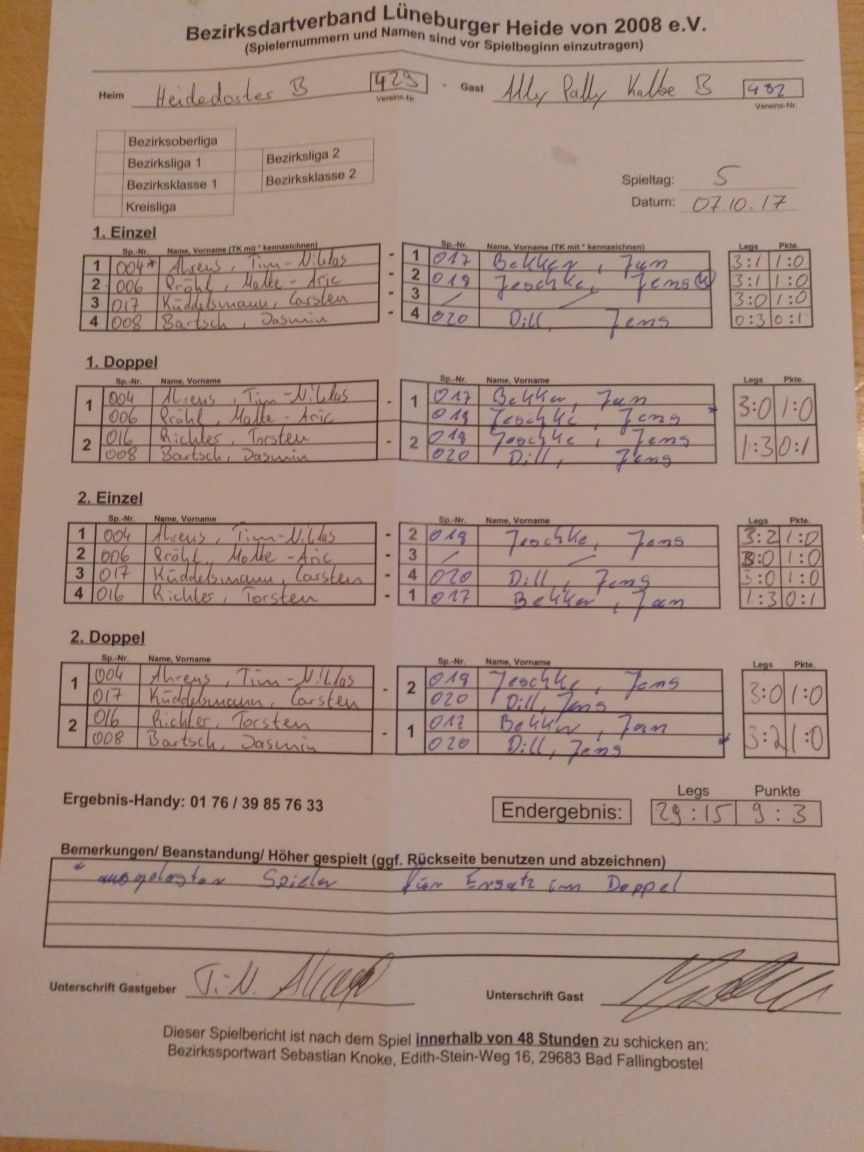 Bezirksdartverband Lüneburger Heide von 2008 e.V.
(Spielernummern und Namen sind vor Spielbeginn einzutragen)
Heim Heidedarter B 429 - Gast Ally Pally Kalbe B 432
Vereins-Nr. Vereins-Nr.
Bezirksoberliga
Bezirksliga 1 Bezirksliga 2
Bezirksklasse 1 Bezirksklasse 2
Kreisliga
Spieltag: 5
Datum: 07.10.17
1. Einzel
Sp.-Nr. Name, Vorname (TK mit * kennzeichnen) Sp.-Nr. Name, Vorname (TK mit * kennzeichnen) Legs Pkte.
1 004* Ahrens, Tim-Niklas - 1 017 Bekker, Jan 3:1 1:0
2 006 Pröhl, Malte-Aric - 2 019 Jeschke, Jens 3:1 1:0
3 017 Küddelsmann, Carsten - 3 / / 3:0 1:0
4 008 Bartsch, Jasmin - 4 020 Dill, Jens 0:3 0:1
1. Doppel
Sp.-Nr. Name, Vorname Sp.-Nr. Name, Vorname Legs Pkte.
1 004 Ahrens, Tim-Niklas - 1 017 Bekker, Jan 3:0 1:0
006 Pröhl, Malte-Aric 019 Jeschke, Jens *
2 016 Richter, Torsten - 2 019 Jeschke, Jens 1:3 0:1
008 Bartsch, Jasmin 020 Dill, Jens
2. Einzel
Sp.-Nr. Name, Vorname Sp.-Nr. Name, Vorname Legs Pkte.
1 004 Ahrens, Tim-Niklas - 2 019 Jeschke, Jens 3:2 1:0
2 006 Pröhl, Malte-Aric - 3 / / 3:0 1:0
3 017 Küddelsmann, Carsten - 4 020 Dill, Jens 3:0 1:0
4 016 Richter, Torsten - 1 017 Bekker, Jan 1:3 0:1
2. Doppel
Sp.-Nr. Name, Vorname Sp.-Nr. Name, Vorname Legs Pkte.
1 004 Ahrens, Tim-Niklas - 2 019 Jeschke, Jens 3:0 1:0
017 Küddelsmann, Carsten 020 Dill, Jens
2 016 Richter, Torsten - 1 017 Bekker, Jan 3:2 1:0
008 Bartsch, Jasmin 020 Dill, Jens *
Legs Punkte
Ergebnis-Handy: 01 76 / 39 85 76 33 Endergebnis: 29:15 9:3
Bemerkungen/ Beanstandung/ Höher gespielt (ggf. Rückseite benutzen und abzeichnen)
* ausgelosten Spieler für Ersatz im Doppel
Unterschrift Gastgeber T.-N. Unterschrift Gast
Dieser Spielbericht ist nach dem Spiel innerhalb von 48 Stunden zu schicken an:
Bezirkssportwart Sebastian Knoke, Edith-Stein-Weg 16, 29683 Bad Fallingbostel